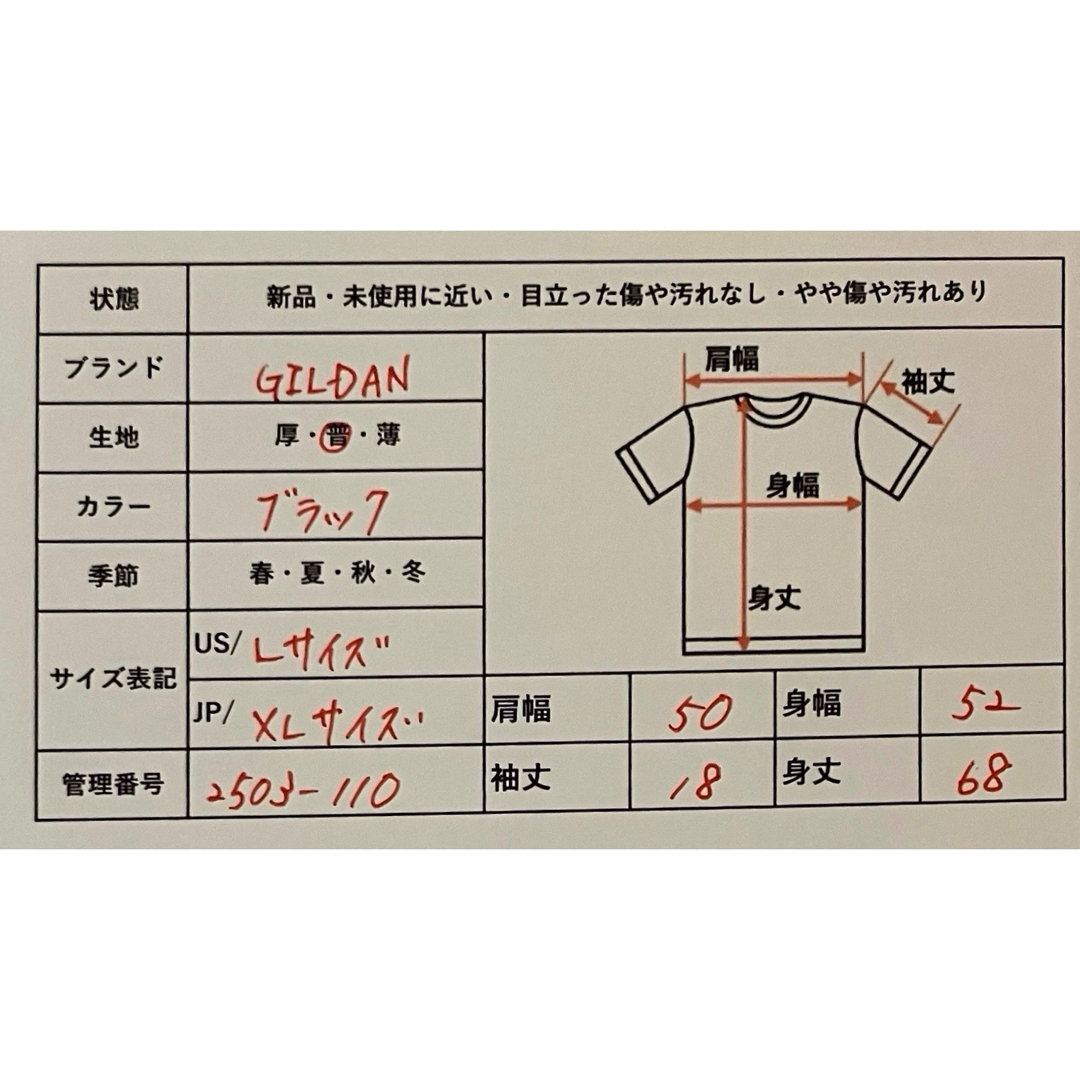 状態
新品・未使用に近い・目立った傷や汚れなし・やや傷や汚れあり
ブランド
GILDAN
生地
厚・普・薄
カラー
ブラック
季節
春・夏・秋・冬
サイズ表記
US/ Lサイズ
JP/ XLサイズ
管理番号
2503-110
肩幅
袖丈
身幅
身丈
肩幅 50 身幅 52
袖丈 18 身丈 68